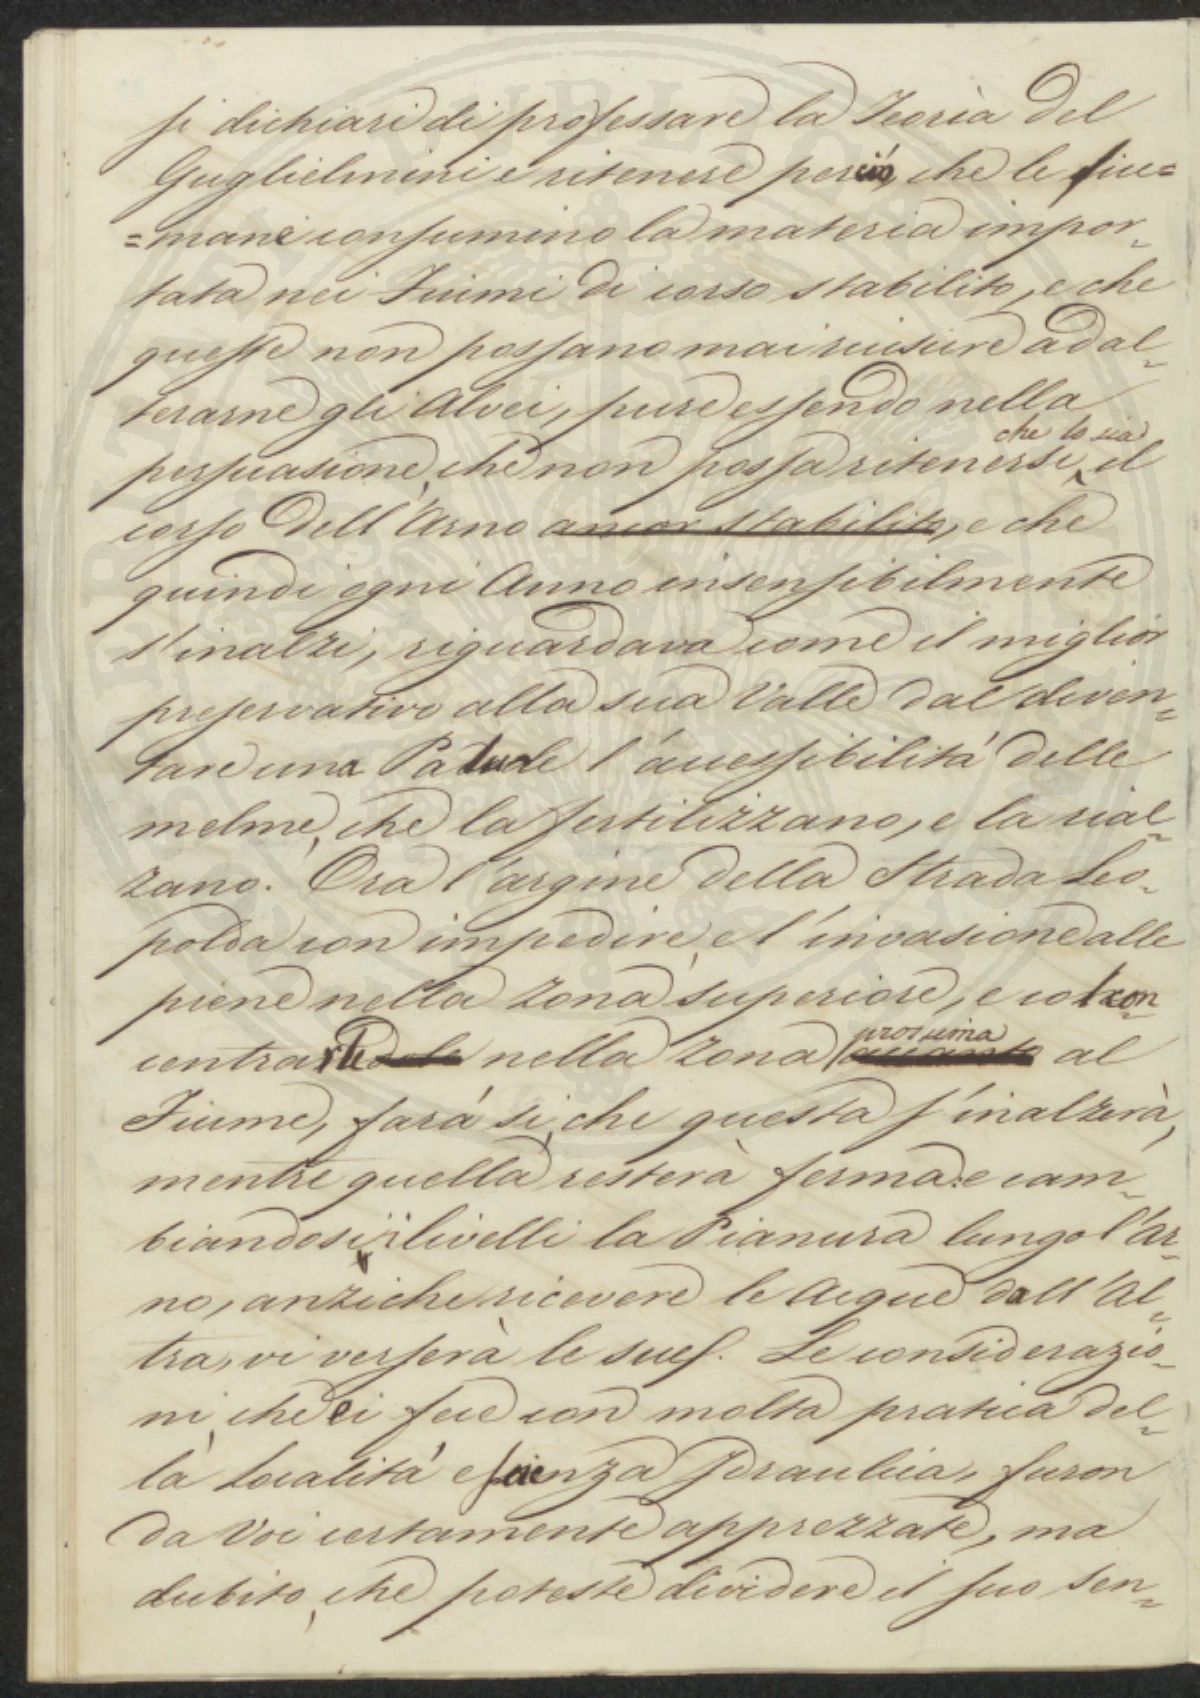 si dichiari di professare la Teoria del
Guglielmini e ritenere perciò, che le fiu=
=mane consumino la materia impor=
tata nei Fiumi di corso stabilito, e che
queste non possano mai riuscire ad al=
terarne gli Alvei, pure essendo nella
persuasione, che non possa ritenersi che lo sia il
corso dell'Arno ancor stabilito, e che
quindi ogni Anno insensibilmente
s'inalzi, riguardava come il miglior
preservativo alla sua Valle dal diven=
tare una Palude l'accessibilità delle
melme, che la fertilizzano, e la rial=
zano. Ora l'argine della Strada Leo=
polda con impedire, e l'invasione alle
piene nella zona superiore, e col con
centrarle nella zona prossima al
Fiume, farà sì, che questa s'inalzerà,
mentre quella resterà ferma: e cam=
biandosi i livelli la Pianura lungo l'Ar=
no, anziche ricevere le Acque dall'Al=
tra, vi verserà le sue. Le considerazio=
ni, che ei fece con molta pratica del=
la località e scienza Idraulica, furon
da Voi certamente apprezzate, ma
dubito, che poteste dividere il suo sen=